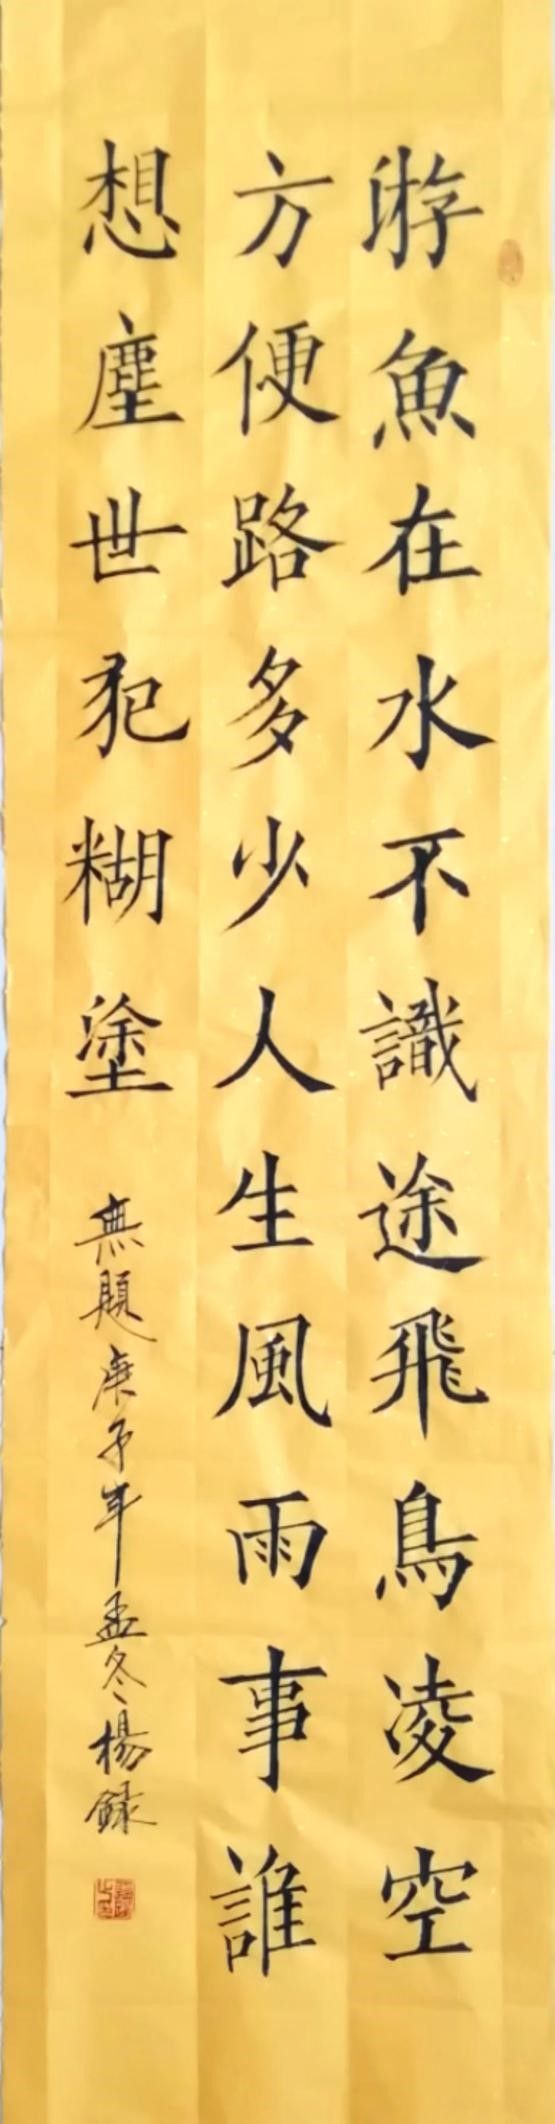 游魚在水不識途飛鳥凌空
方便路多少人生風雨事誰
想塵世犯糊塗
無題庚子年孟冬楊錄